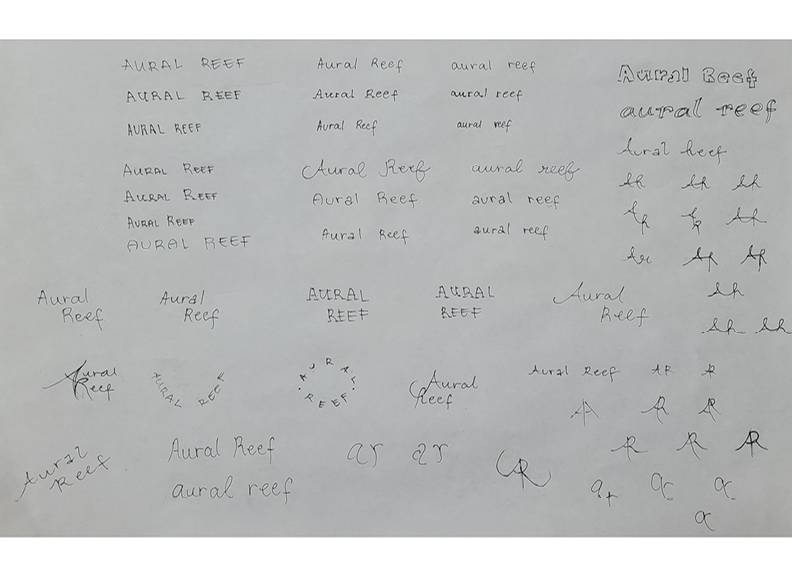 AURAL REEF Aural Reef aural reef
Aural Reef
AURAL REEF Aural Reef aural reef
aural reef
AURAL REEF Aural Reef aural reef
Aural Reef
AURAL REEF Aural Reef aural reef
AURAL REEF Aural Reef aural reef
AURAL REEF
AURAL REEF Aural Reef aural reef
Aural
Reef
Aural
Reef
AURAL
REEF
AURAL
REEF
Aural
Reef
Aural
Reef
AURAL REEF
AURAL REEF
Aural
Reef
Aural Reef AR AR
AR AR AR
Aural
Reef
Aural Reef
aural reef
ar ar
AR
AR AR AR